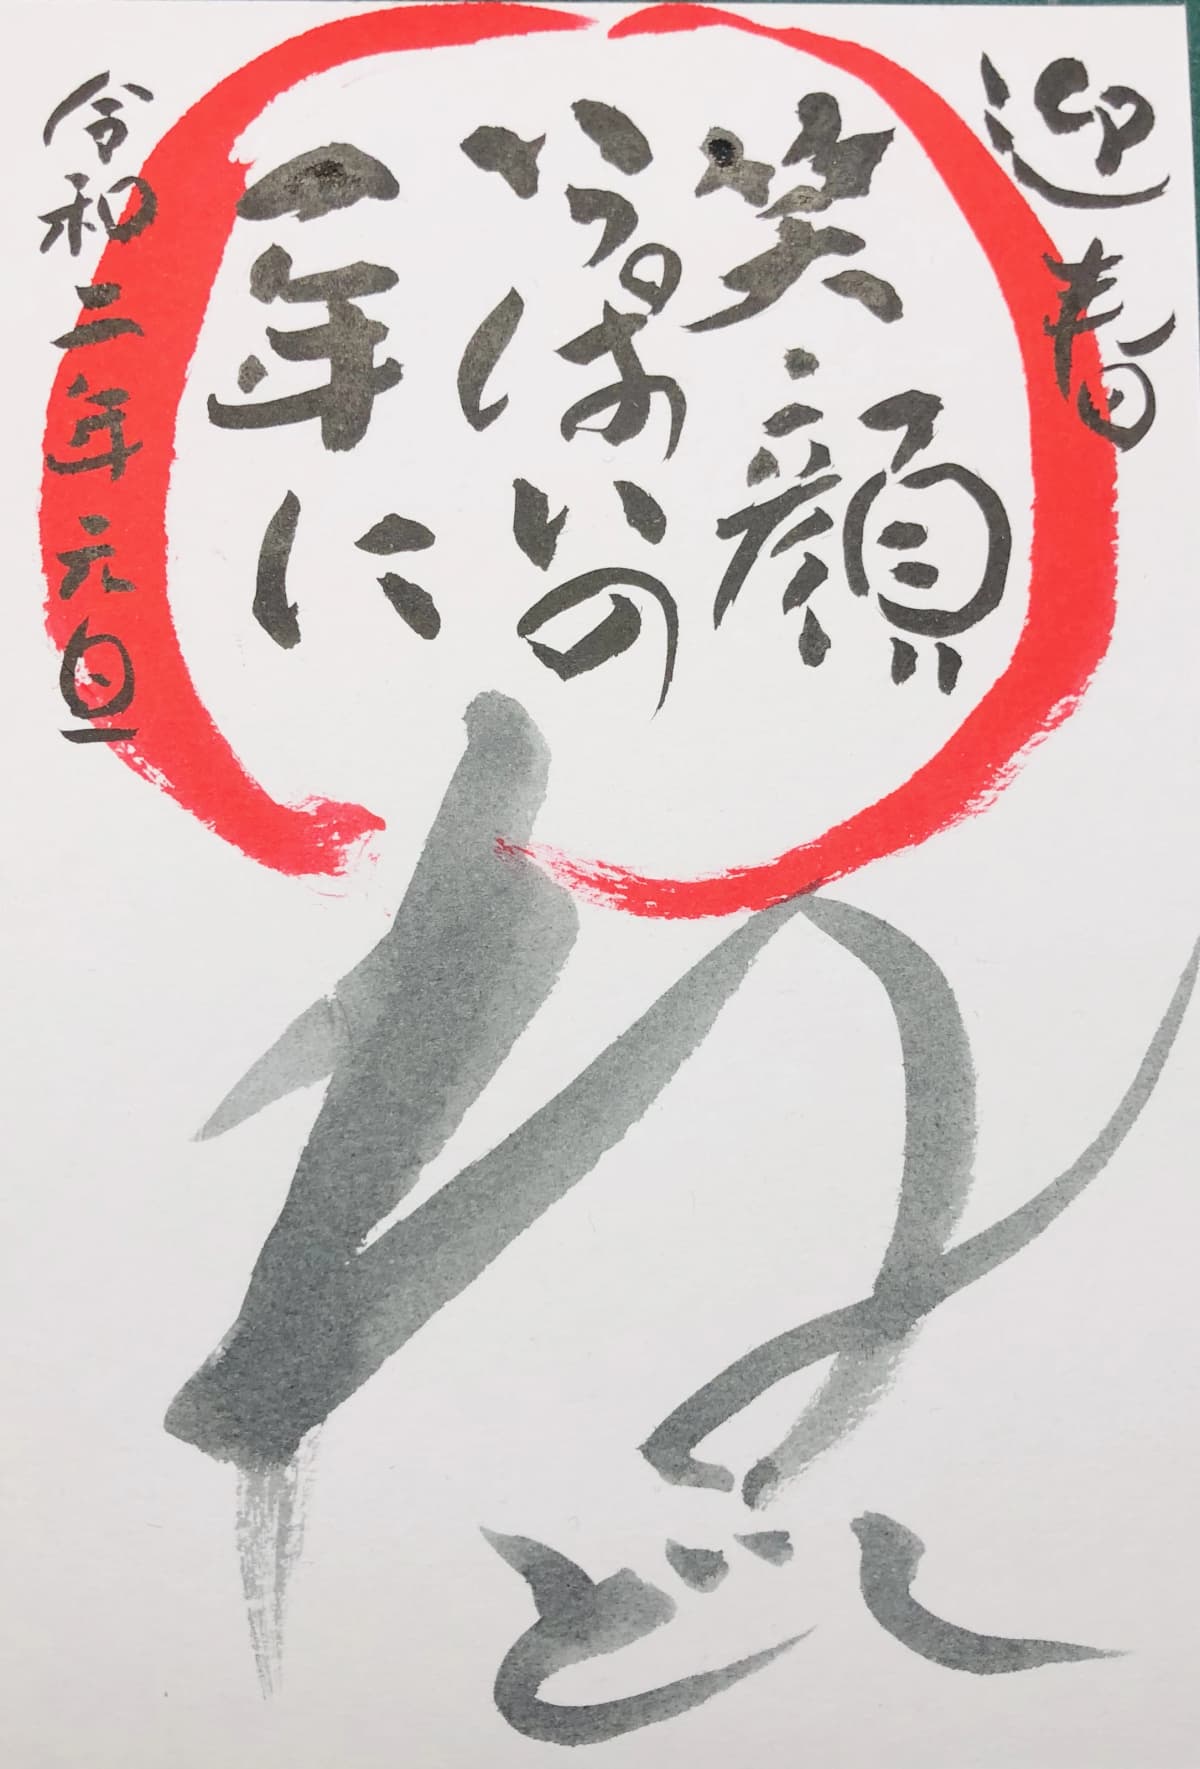 迎春
笑顔
いっぱいの
一年に
令和二年元旦
ねどし